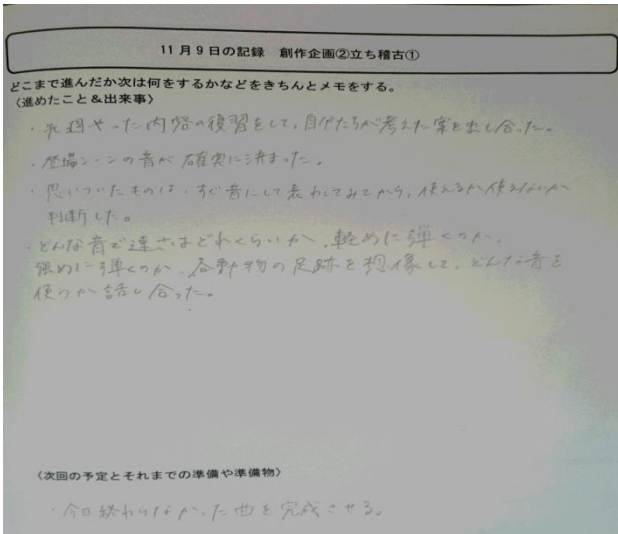 11月9日の記録　創作企画②立ち稽古①
どこまで進んだか次は何をするかなどをきちんとメモをする。
〈進めたこと&出来事〉
・先週やった内容の復習をして、自分たちが考えた案を出し合った。
・登場シーンの音が確実に決まった。
・思いついたものは、すぐ音にして表わしてみてから、使えるか使えないか
判断した。
・どんな音で速さはどれくらいか、軽めに弾くのか、
強めに弾くのか、各動物の足跡を想像して、どんな音を
使うか話し合った。
〈次回の予定とそれまでの準備や準備物〉
・今日終わらなかった曲を完成させる。